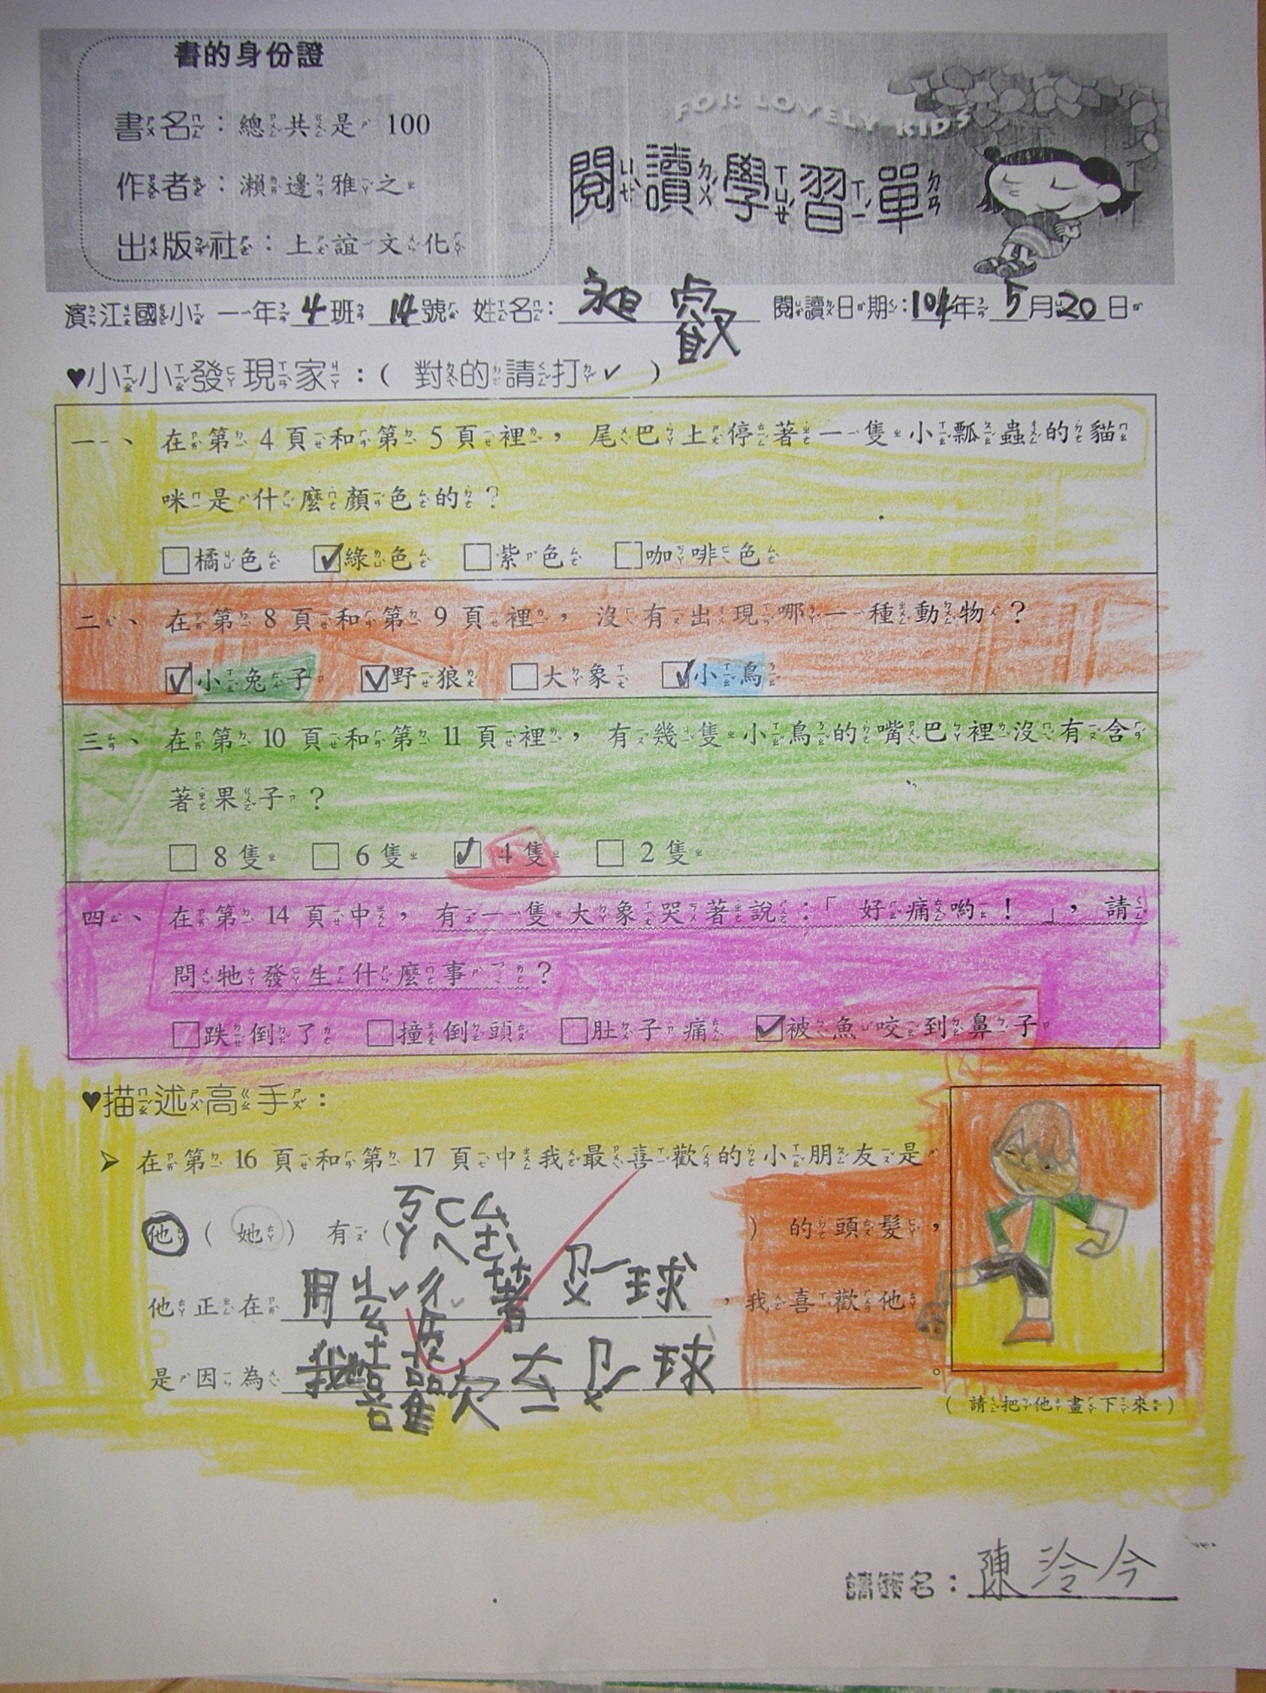 書的身份證
書名：總共是 100
作者：瀨邊雅之
出版社：上誼文化
FOR LOVELY KIDS
閱讀學習單
濱江國小 一年 4 班 14 號 姓名：昶叡 閱讀日期：104年 5 月 20 日
♥小小發現家：( 對的請打✓ )
一、在第 4 頁和第 5 頁裡，尾巴上停著一隻小瓢蟲的貓
咪是什麼顏色的？
□橘色 ☑綠色 □紫色 □咖啡色
二、在第 8 頁和第 9 頁裡，沒有出現哪一種動物？
☑小兔子 ☑野狼 □大象 ☑小鳥
三、在第 10 頁和第 11 頁裡，有幾隻小鳥的嘴巴裡沒有含
著果子？
□ 8 隻 □ 6 隻 ☑ 4 隻 □ 2 隻
四、在第 14 頁中，有一隻大象哭著說：「好痛喲！」，請
問牠發生什麼事了？
□跌倒了 □撞倒頭 □肚子痛 ☑被魚咬到鼻子
♥描述高手：
➢ 在第 16 頁和第 17 頁中我最喜歡的小朋友是
他 ( 她 ) 有 (ㄎㄚㄈㄟ ) 的頭髮，
他正在 著 球 ，我喜歡他
是因為 我 喜歡 球 。
( 請把他畫下來 )
請簽名：陳泠今